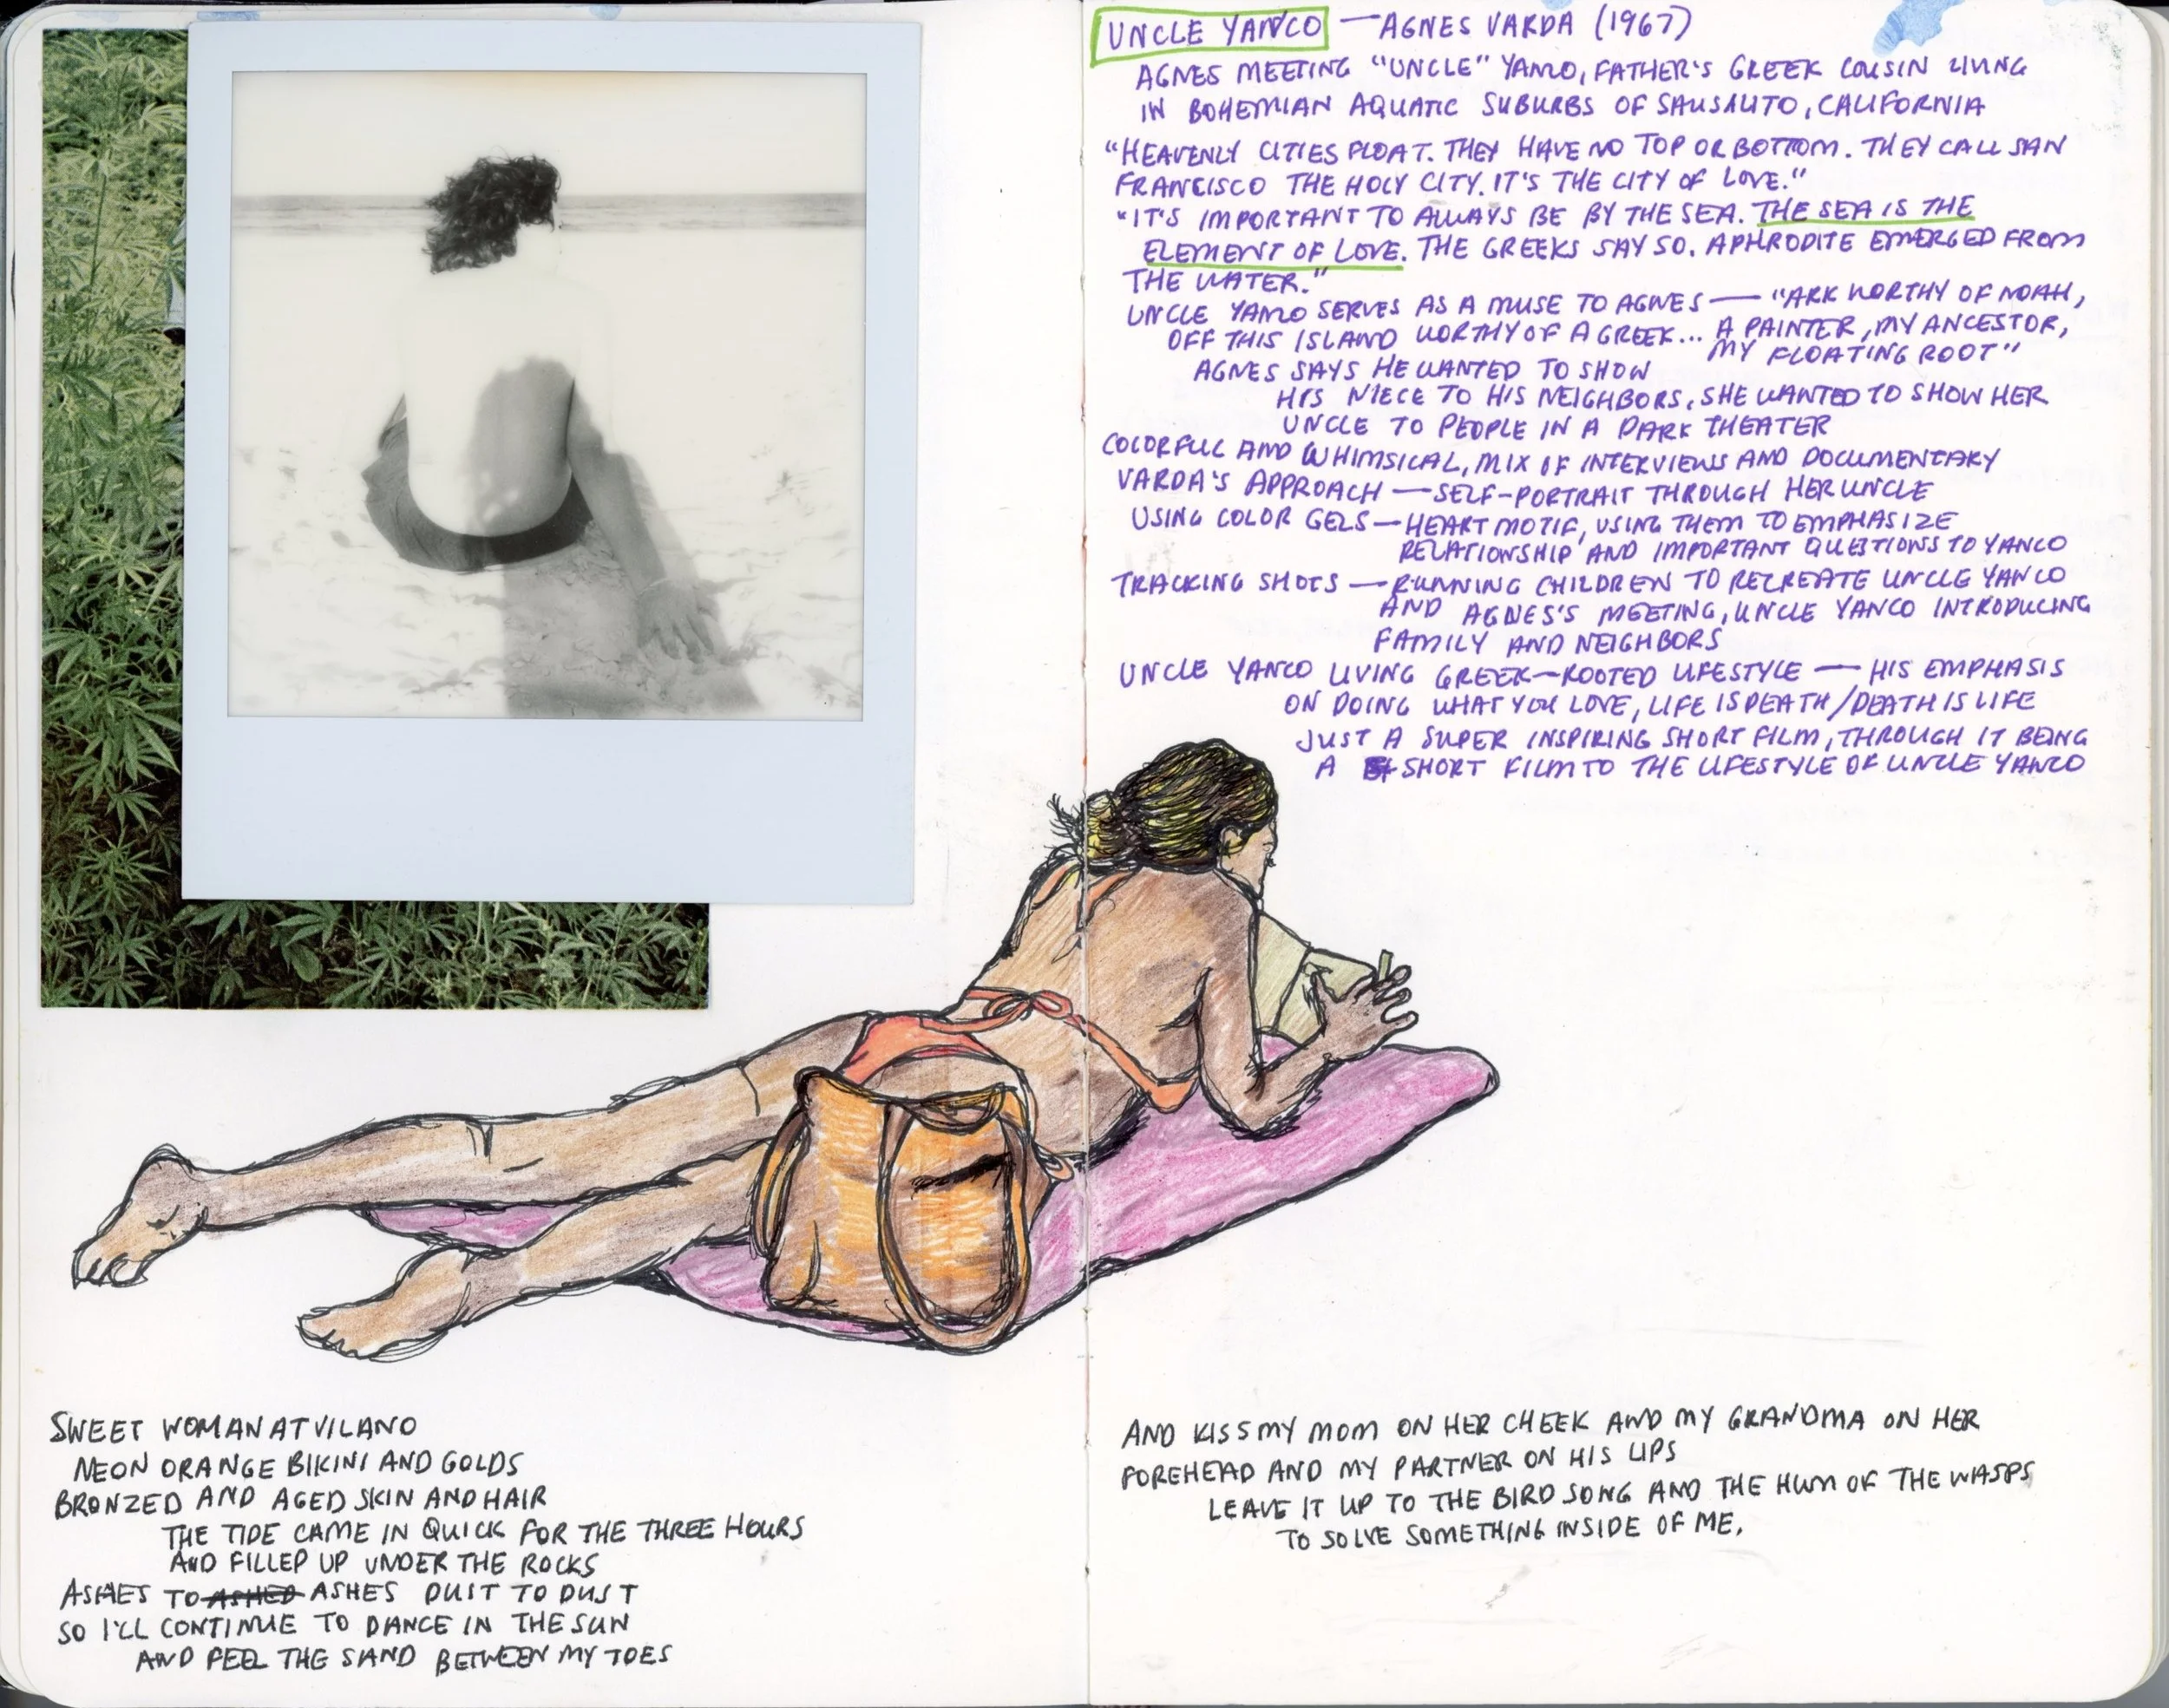 UNCLE YANCO — AGNES VARDA (1967)
AGNES MEETING "UNCLE" YANCO, FATHER'S GREEK COUSIN LIVING
IN BOHEMIAN AQUATIC SUBURBS OF SAUSALITO, CALIFORNIA
"HEAVENLY CITIES FLOAT. THEY HAVE NO TOP OR BOTTOM. THEY CALL SAN
FRANCISCO THE HOLY CITY. IT'S THE CITY OF LOVE."
"IT'S IMPORTANT TO ALWAYS BE BY THE SEA. THE SEA IS THE
ELEMENT OF LOVE. THE GREEKS SAY SO. APHRODITE EMERGED FROM
THE WATER."
UNCLE YANCO SERVES AS A MUSE TO AGNES — "ARK WORTHY OF NOAH,
OFF THIS ISLAND WORTHY OF A GREEK... A PAINTER, MY ANCESTOR,
MY FLOATING ROOT"
AGNES SAYS HE WANTED TO SHOW
HIS NIECE TO HIS NEIGHBORS, SHE WANTED TO SHOW HER
UNCLE TO PEOPLE IN A DARK THEATER
COLORFUL AND WHIMSICAL, MIX OF INTERVIEWS AND DOCUMENTARY
VARDA'S APPROACH — SELF-PORTRAIT THROUGH HER UNCLE
USING COLOR GELS — HEART MOTIF, USING THEM TO EMPHASIZE
RELATIONSHIP AND IMPORTANT QUESTIONS TO YANCO
TRACKING SHOTS — RUNNING CHILDREN TO RECREATE UNCLE YANCO
AND AGNES'S MEETING, UNCLE YANCO INTRODUCING
FAMILY AND NEIGHBORS
UNCLE YANCO LIVING GREEK-ROOTED LIFESTYLE — HIS EMPHASIS
ON DOING WHAT YOU LOVE, LIFE IS DEATH/DEATH IS LIFE
JUST A SUPER INSPIRING SHORT FILM, THROUGH IT BEING
A SHORT FILM TO THE LIFESTYLE OF UNCLE YANCO
SWEET WOMAN AT VILANO
NEON ORANGE BIKINI AND GOLDS
BRONZED AND AGED SKIN AND HAIR
THE TIDE CAME IN QUICK FOR THE THREE HOURS
AND FILLED UP UNDER THE ROCKS
ASHES TO ASHED ASHES DUST TO DUST
SO I'LL CONTINUE TO DANCE IN THE SUN
AND FEEL THE SAND BETWEEN MY TOES
AND KISS MY MOM ON HER CHEEK AND MY GRANDMA ON HER
FOREHEAD AND MY PARTNER ON HIS LIPS
LEAVE IT UP TO THE BIRD SONG AND THE HUM OF THE WASPS
TO SOLVE SOMETHING INSIDE OF ME.